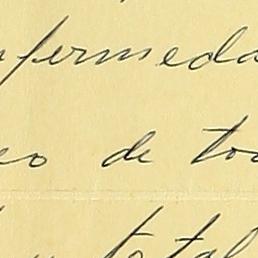 nfermeda
eo de to
total